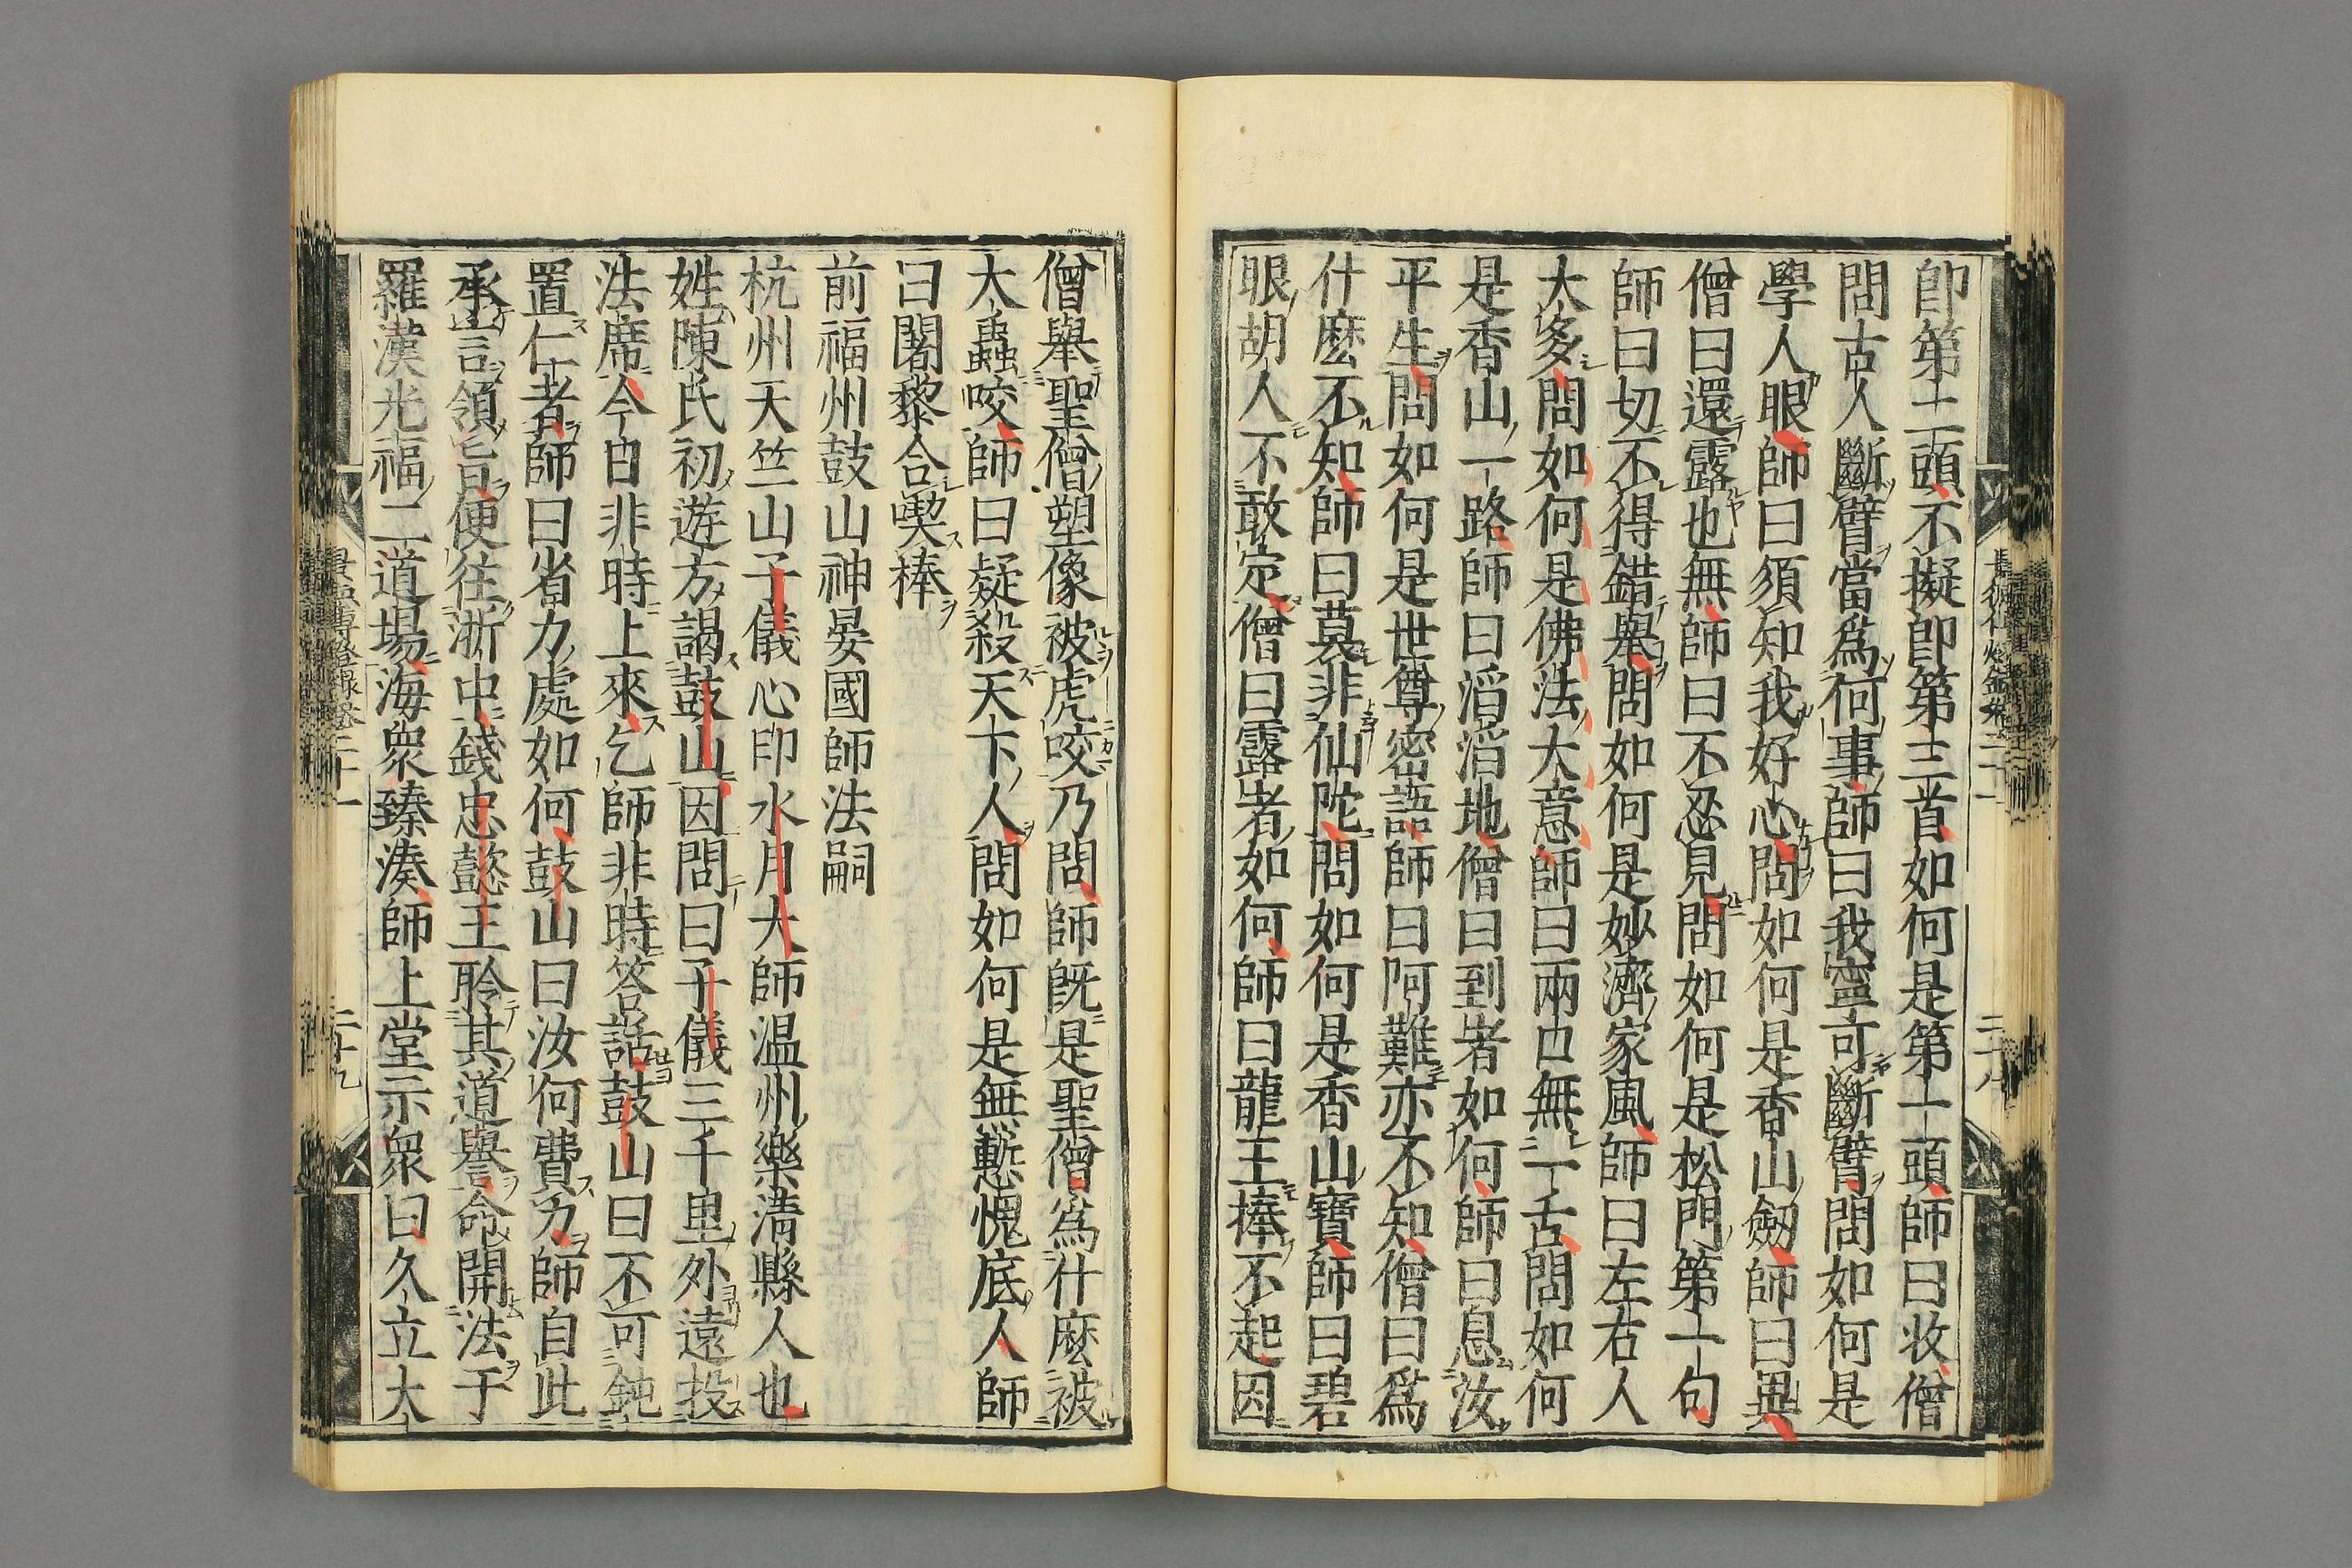 卽第二頭不擬卽第三首如何是第一頭師曰收僧
問古人斷臂當爲何事師曰我寧可斷臂問如何是
學人眼師曰須知我好心問如何是香山劒師曰異
僧曰還露也無師曰不忍見問如何是松門第一句
師曰切不得錯舉問如何是妙濟家風師曰左右人
太多問如何是佛法大意師曰兩口無一舌問如何
是香山一路師曰滔滔地僧曰到者如何師曰息汝
平生問如何是世尊密語師曰阿難亦不知僧曰爲
什麼不知師曰莫非仙陀問如何是香山寶師曰碧
眼胡人不敢定僧曰露者如何師曰龍王捧不起因
僧舉聖僧塑像被虎咬乃問師既是聖僧爲什麼被
大蟲咬師曰疑殺天下人問如何是無慙愧底人師
曰闍黎合喫棒
前福州鼓山神晏國師法嗣
杭州天竺山子儀心印水月大師温州樂清縣人也
姓陳氏初遊方謁鼓山因問曰子儀三千里外遠投
法席今日非時上來乞師非時答話鼓山曰不可鈍
置仁者師曰省力處如何鼓山曰汝何費力師自此
承言領旨便往浙中錢忠懿王聆其道譽命開法于
羅漢光福二道場海衆臻湊師上堂示衆曰久立大
景德傳燈錄卷二十一
二十九